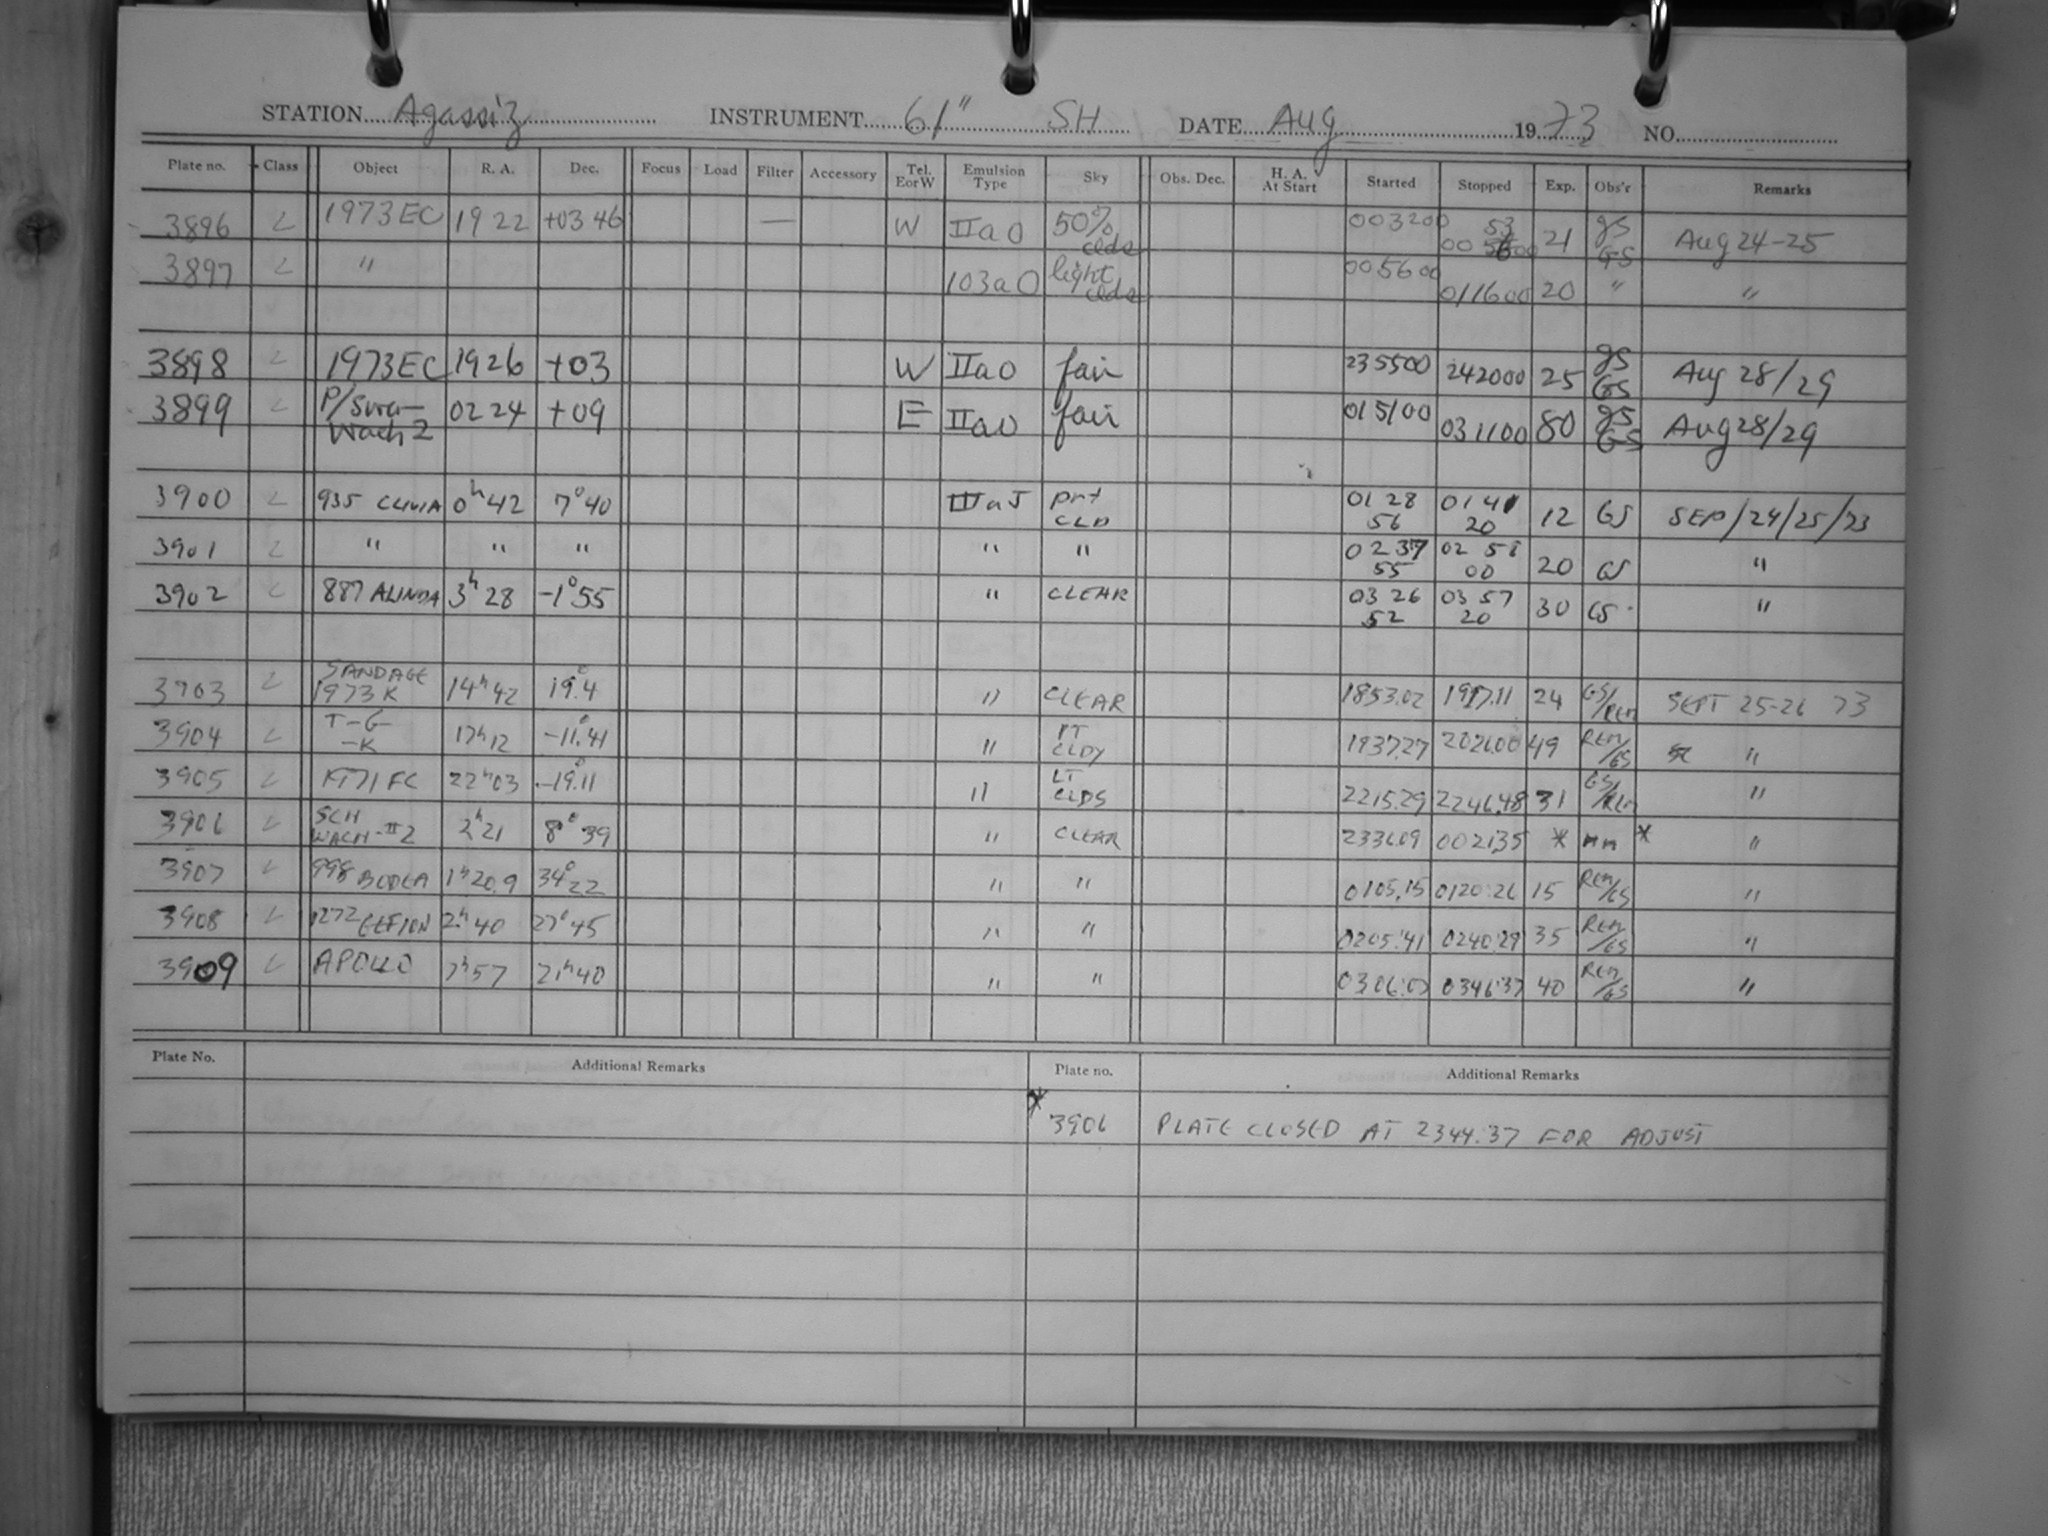 STATION Agassiz INSTRUMENT 61" SH DATE Aug 1973 NO.
Plate no. Class Object R. A. Dec. Focus Load Filter Accessory Tel. EorW Emulsion Type Sky Obs. Dec. H. A. At Start Started Stopped Exp. Obs'r Remarks
3896 1973EC 19 22 +03 46 — W IIaO 50% clds 003200 53 00 5600 21 GS Aug 24-25
3897 " 103aO light clds 005600 011600 20 " "
3898 1973EC 1926 +03 W IIaO fair 235500 242000 25 GS Aug 28/29
3899 P/Swa- Wach 2 02 24 +09 E IIaO fair 015100 031100 80 GS Aug 28/29
3900 935 CLIVIA 0h42 7°40 IIIaJ prt CLD 01 28 56 01 41 20 12 GS SEP/24/25/73
3901 " " " " " 02 37 55 02 51 00 20 GS "
3902 887 ALINDA 3h28 -1°55 " CLEAR 03 26 52 03 57 20 30 GS "
3703 SANDAGE 1973K 14h42 19°.4 " CLEAR 1853.02 1917.11 24 GS/REM SEPT 25-26 73
3904 T-G-K 17h12 -11°.41 " PT CLDY 1937.27 2026.00 49 REM/GS "
3905 1971 FC 22h03 -19°.11 " LT CLDS 2215.29 2246.48 31 GS/REM "
3906 SCH WACH-2 2h21 8°39 " CLEAR 2336.09 0021.35 * " " * "
3907 998 BODEA 1h20.9 34°22 " " 0105.15 0120.26 15 REM/GS "
3908 1272 GEFION 2h40 27°45 " " 0205:41 0240:29 35 REM/GS "
3909 APOLLO 7h57 21h40 " " 0306:07 0346:37 40 REM/GS "
Plate No. Additional Remarks Plate no. Additional Remarks
* 3906 PLATE CLOSED AT 2344:37 FOR ADJUST